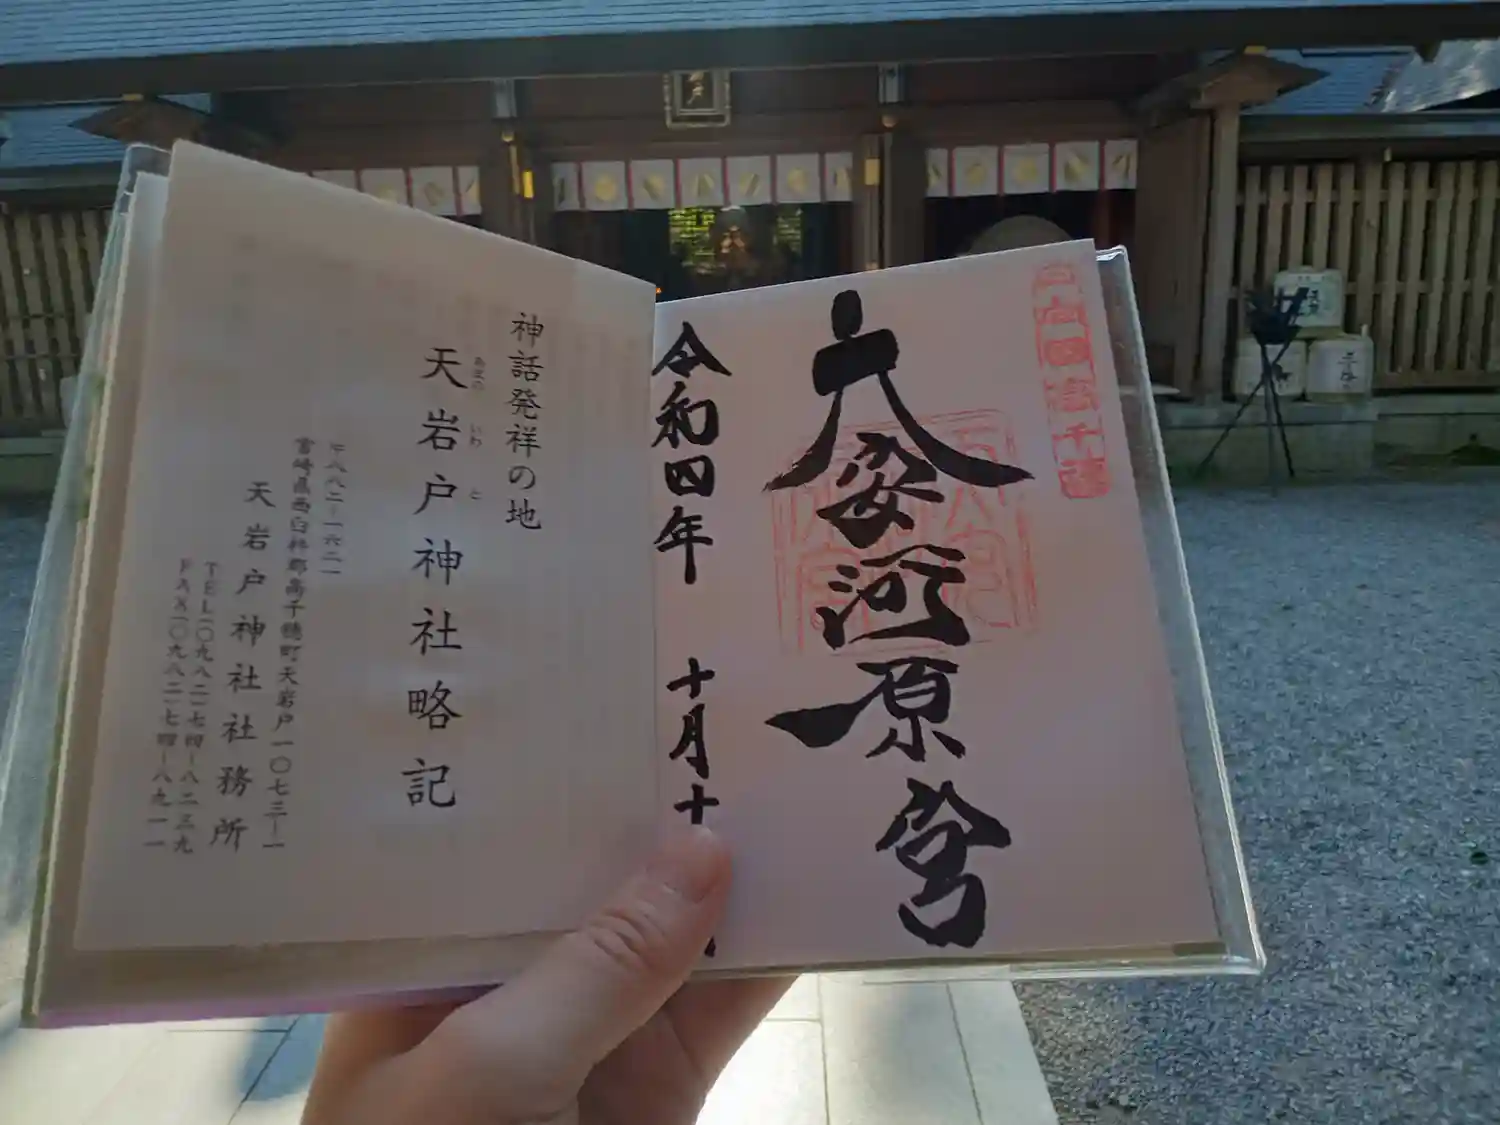 日向国高千穂
天安河原宮
令和四年 十月十
神話発祥の地
あまの いわ と
天岩戸神社略記
〒八八二-一六二一
宮崎県西臼杵郡高千穂町天岩戸一〇七三-一
天岩戸神社社務所
TEL〇九八二-七四-八二三九
FAX〇九八二-七四-八九一一